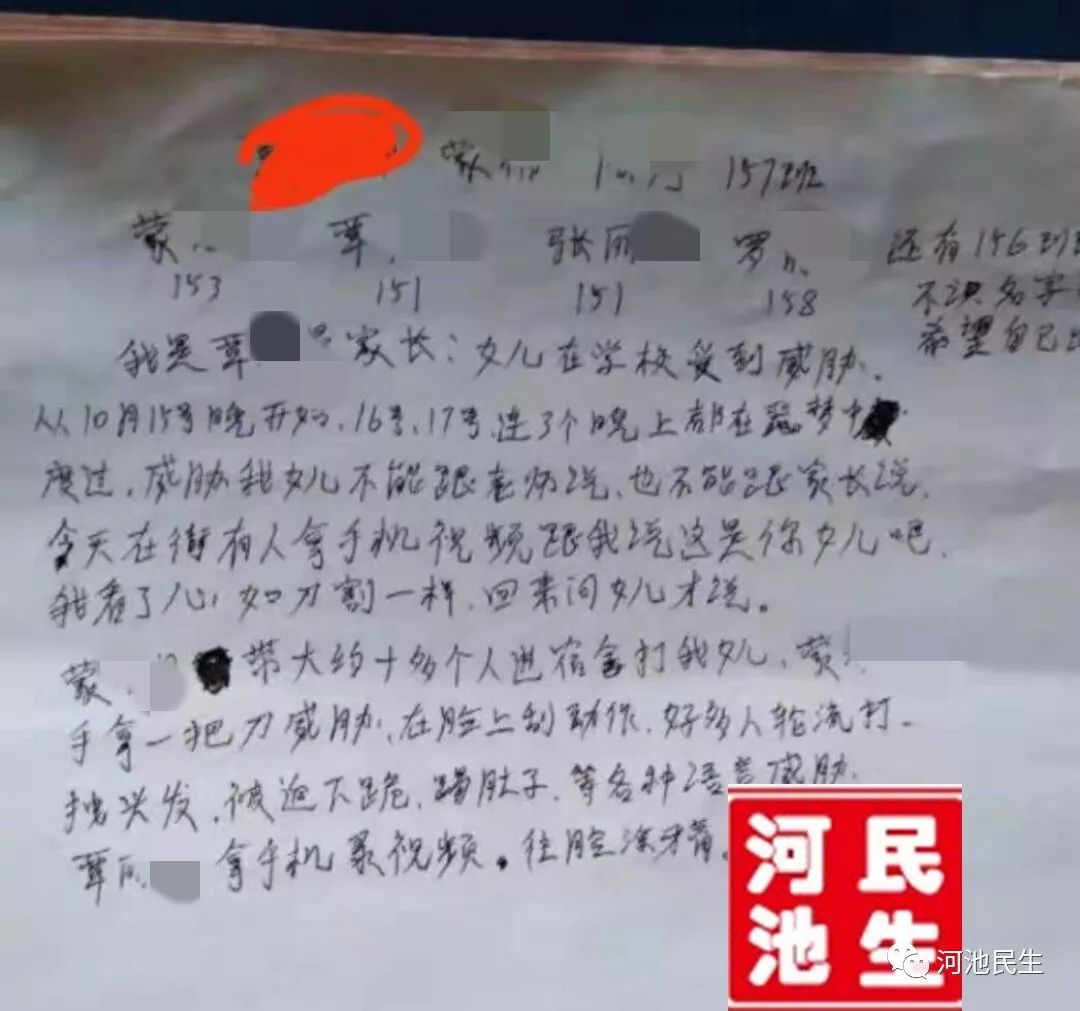 蒙 157班
蒙 覃 张丽 罗 还有156班
153 151 151 158 不识名字
希望自己
我是覃 家长:女儿在学校受到威胁.
从10月15号晚开始、16号、17号、连3个晚上都在恶梦中
度过,威胁我女儿不能跟老师说、也不能跟家长说,
今天在街有人拿手机视频跟我说这是你女儿吧.
我看了心如刀割一样,回来问女儿才说。
蒙 带大约十多个人进宿舍打我女儿、蒙
手拿一把刀威胁、在脸上刮动作.好多人轮流打.
拽头发,被迫下跪、踢肚子、等各种语言威胁.
覃 拿手机录视频。往脸涂牙膏.
河池民生
河池民生